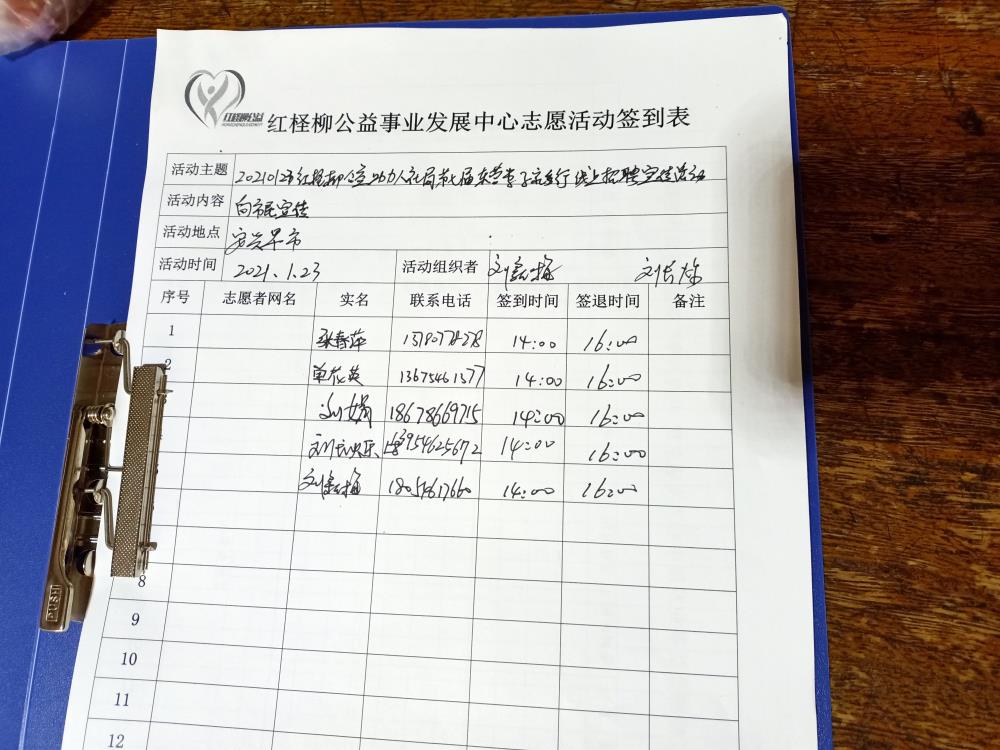 红柽柳公益
红柽柳公益事业发展中心志愿活动签到表
活动主题 20210123红柽柳公益助力人社局第七届东营春风行线上招聘宣传活动
活动内容 向市民宣传
活动地点 早市
活动时间 2021.1.23 活动组织者
序号 志愿者网名 实名 联系电话 签到时间 签退时间 备注
1 张春萍 14:00 16:00
2 单花英 13675461377 14:00 16:00
刘娟 18678669715 14:00 16:00
13954625672 14:00 16:00
18054617660 14:00 16:00
8
9
10
11
12
PUSH